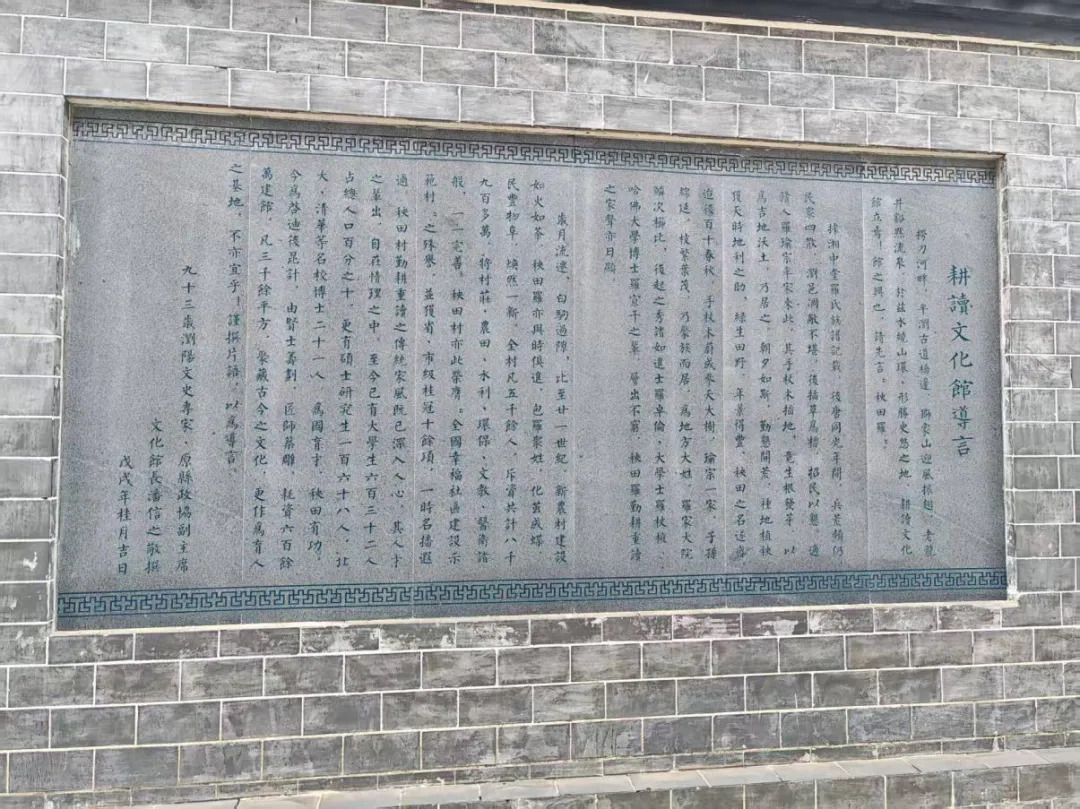 耕讀文化館導言
撈刀河畔，平瀏古道橋邊，獅象山迎風振翅，老龍
井豁然流泉，於茲水繞山環、形勝史悠之地，耕讀文化
館立焉！館之興也，請先言：秧田羅。
據湘中堂羅氏族譜記載，後唐同光年間，兵荒饑仍
民衆四散，瀏邑凋敝不堪，後插草爲標，招民以墾，適
贛人羅瑜宗年家來此，其手杖木插地，竟生根發芽，以
爲吉地沃土，乃居之，朝夕如斯，勤懇開荒，種地植秧
獲天時地利之助，綠生田野，年景得豐，秧田之名近
迄後百十春秋，手杖木蔚成參天大樹，瑜宗一家，子孫
綿延，枝繁葉茂，乃聚族而居，爲地方大姓，羅家大院
鱗次櫛比，後起之秀諸如進士羅卓倫、大學士羅
哈佛大學博士羅富千之輩，層出不窮，秧田羅勤耕重讀
之家聲亦日顯
歲月流逝，白駒過隙，比至廿一世紀，新農村建設
如火如荼，秧田羅亦與時俱進，包羅衆姓，化繭成蝶
民豐物阜，煥然一新，全村凡五千餘人，斥資共計八千
九百多萬，將村莊、農田、水利、環保、文教、醫衛諸
般，一一完善，秧田村亦此榮膺：全國幸福社區建設示
範村，之殊譽，並獲省、市級桂冠十餘項，一時名播遐
邇，秧田村勤耕重讀之傳統家風既已深入人心，其人才
之輩出，自在情理之中，至今已有大學生六百三十二人
占總人口百分之十，更有碩士研究生一百六十八人，北
大、清華等名校博士二十一人，爲國育才，秧田有功，
今爲啓迪後昆計，由賢士籌劃，匠師築雕，耗資六百餘
萬建館，凡三千餘平方，聚藏古今之文化，更作爲育人
之基地，不亦宜乎！謹撰片語，以爲導言。
九十三歲瀏陽文史專家、原縣政協副主席
文化館長潘信之敬撰
戊戌年桂月吉日